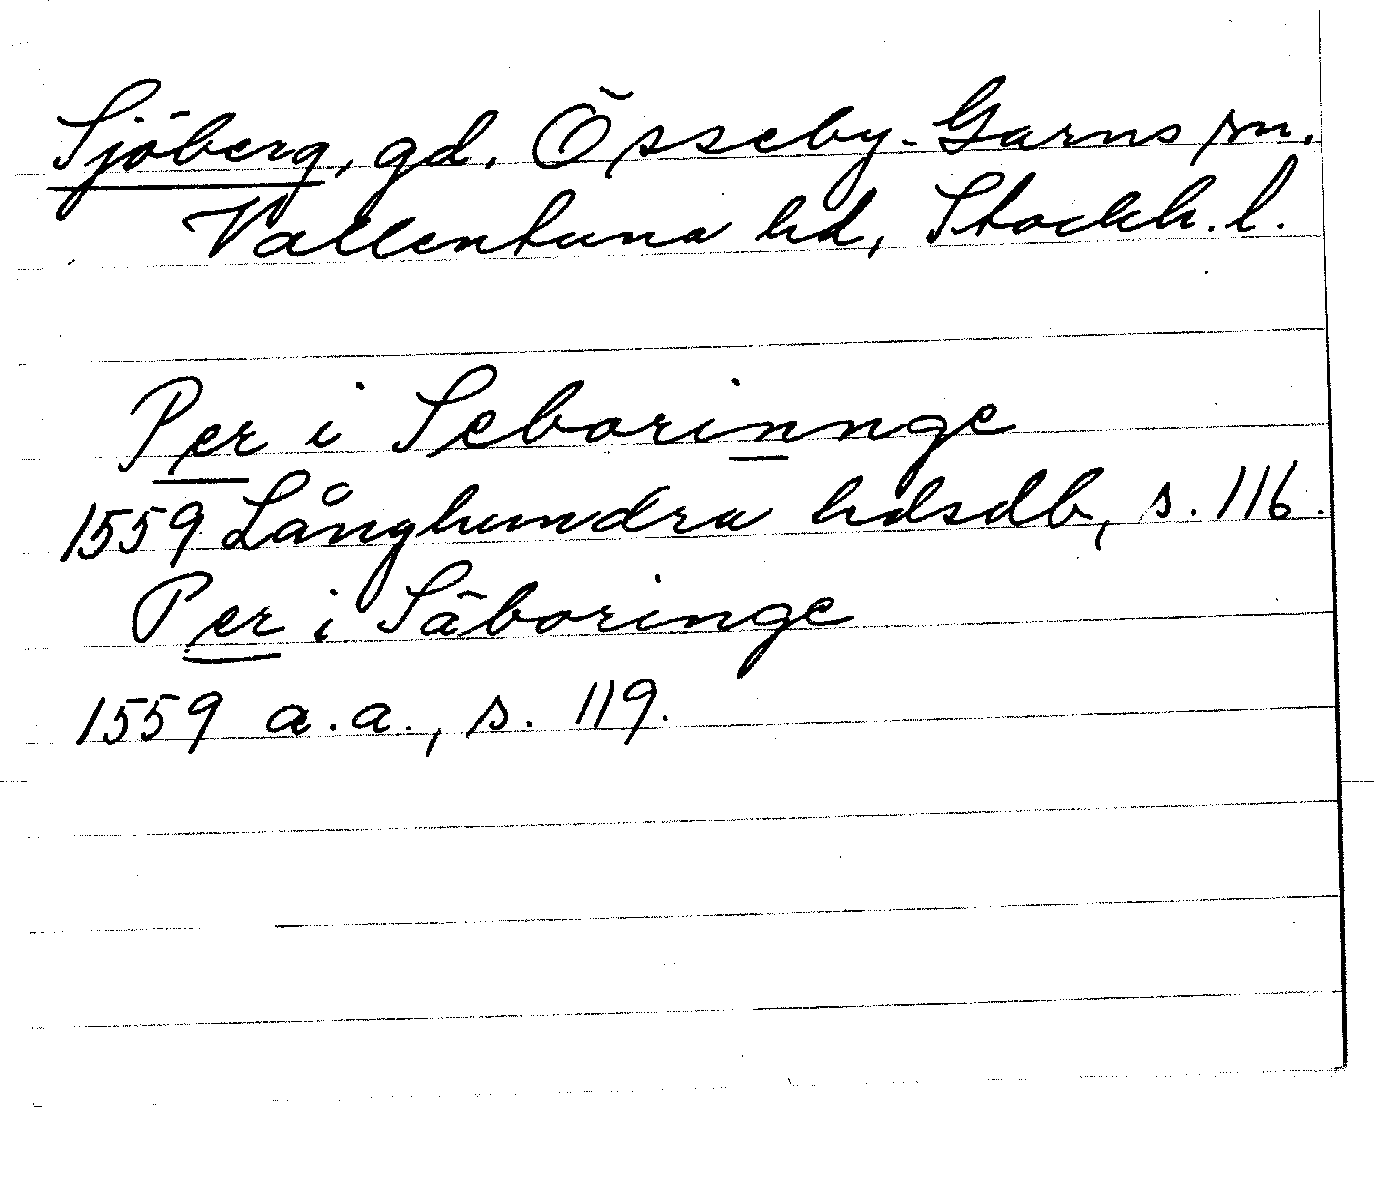 Sjöberg, gd. Össeby-Garns sn.
Vallentuna hd, Stockh. l.
Per i Seborinnge
1559 Långhundra hdsdb, s. 116.
Per i Säboringe
1559 a.a., s. 119.